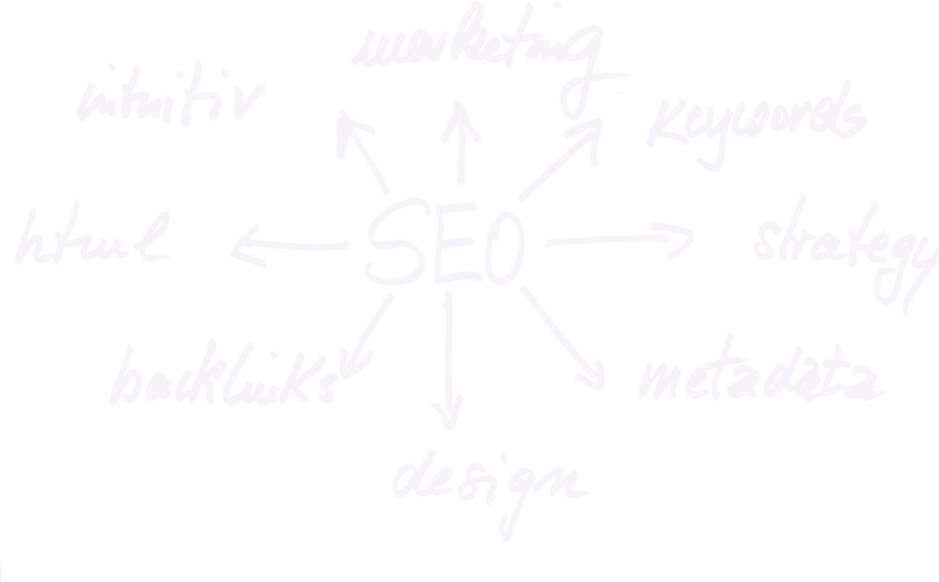 marketing
intuitiv
keywords
html
SEO
strategy
backlinks
metadata
design